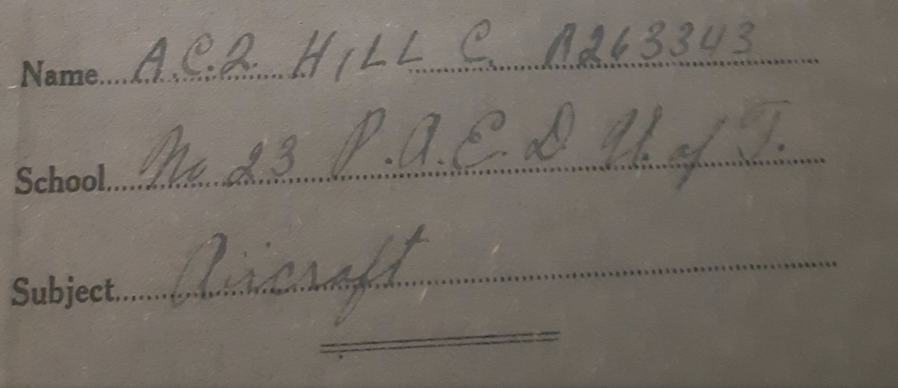 Name....A.C.2. HILL C. R263343
School....No 23 P.A.E.D U. of T.
Subject....Aircraft